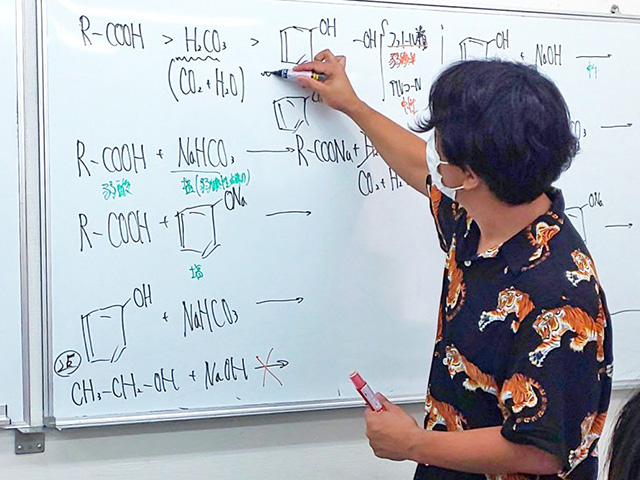 R-COOH > H₂CO₃ > OH
(CO₂+H₂O)
-OH フェノール類 弱酸性
アルコール 中性
OH + NaOH → 中和
R-COOH + NaHCO₃ → R-COONa +
弱酸 塩(弱塩基性)
CO₂+H₂
R-COOH + ONa →
塩
OH + NaHCO₃ →
CH₃-CH₂-OH + NaOH →
ONa